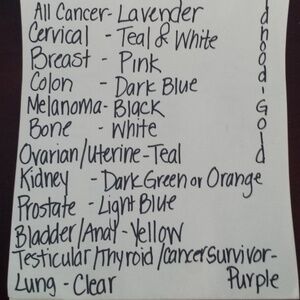 All Cancer-Lavender
Cervical - Teal & White
Breast - Pink
Colon - Dark Blue
Melanoma-Black
Bone - White
Ovarian/Uterine-Teal
Kidney - Dark Green or Orange
Prostate - Light Blue
Bladder/Andy-Yellow
Testicular/Thyroid/Cancer Survivor-
Lung - Clear Purple
dhood-Gold